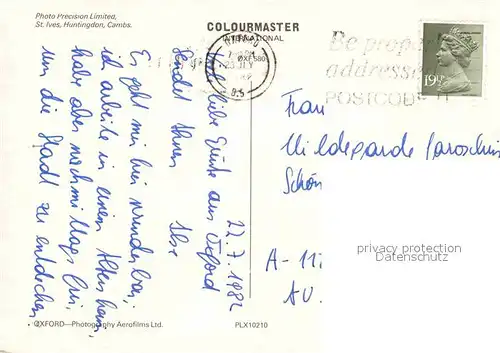 Photo Precision Limited,
St. Ives, Huntingdon, Cambs.
COLOURMASTER
INTERNATIONAL
OXF580
Be properly
addressed
POSTCODE IT
19½P
22.7.1982
liebe Grüße aus Oxford
sendet Ihnen Ilse
Es geht mir hier wunderbar,
ich arbeite in einem Altersheim,
habe aber nachmittags frei,
um die Stadt zu entdecken
Frau
Hildegarde
Schön
A-11
AU.
privacy protection
Datenschutz
OXFORD—Photography Aerofilms Ltd.
PLX10210